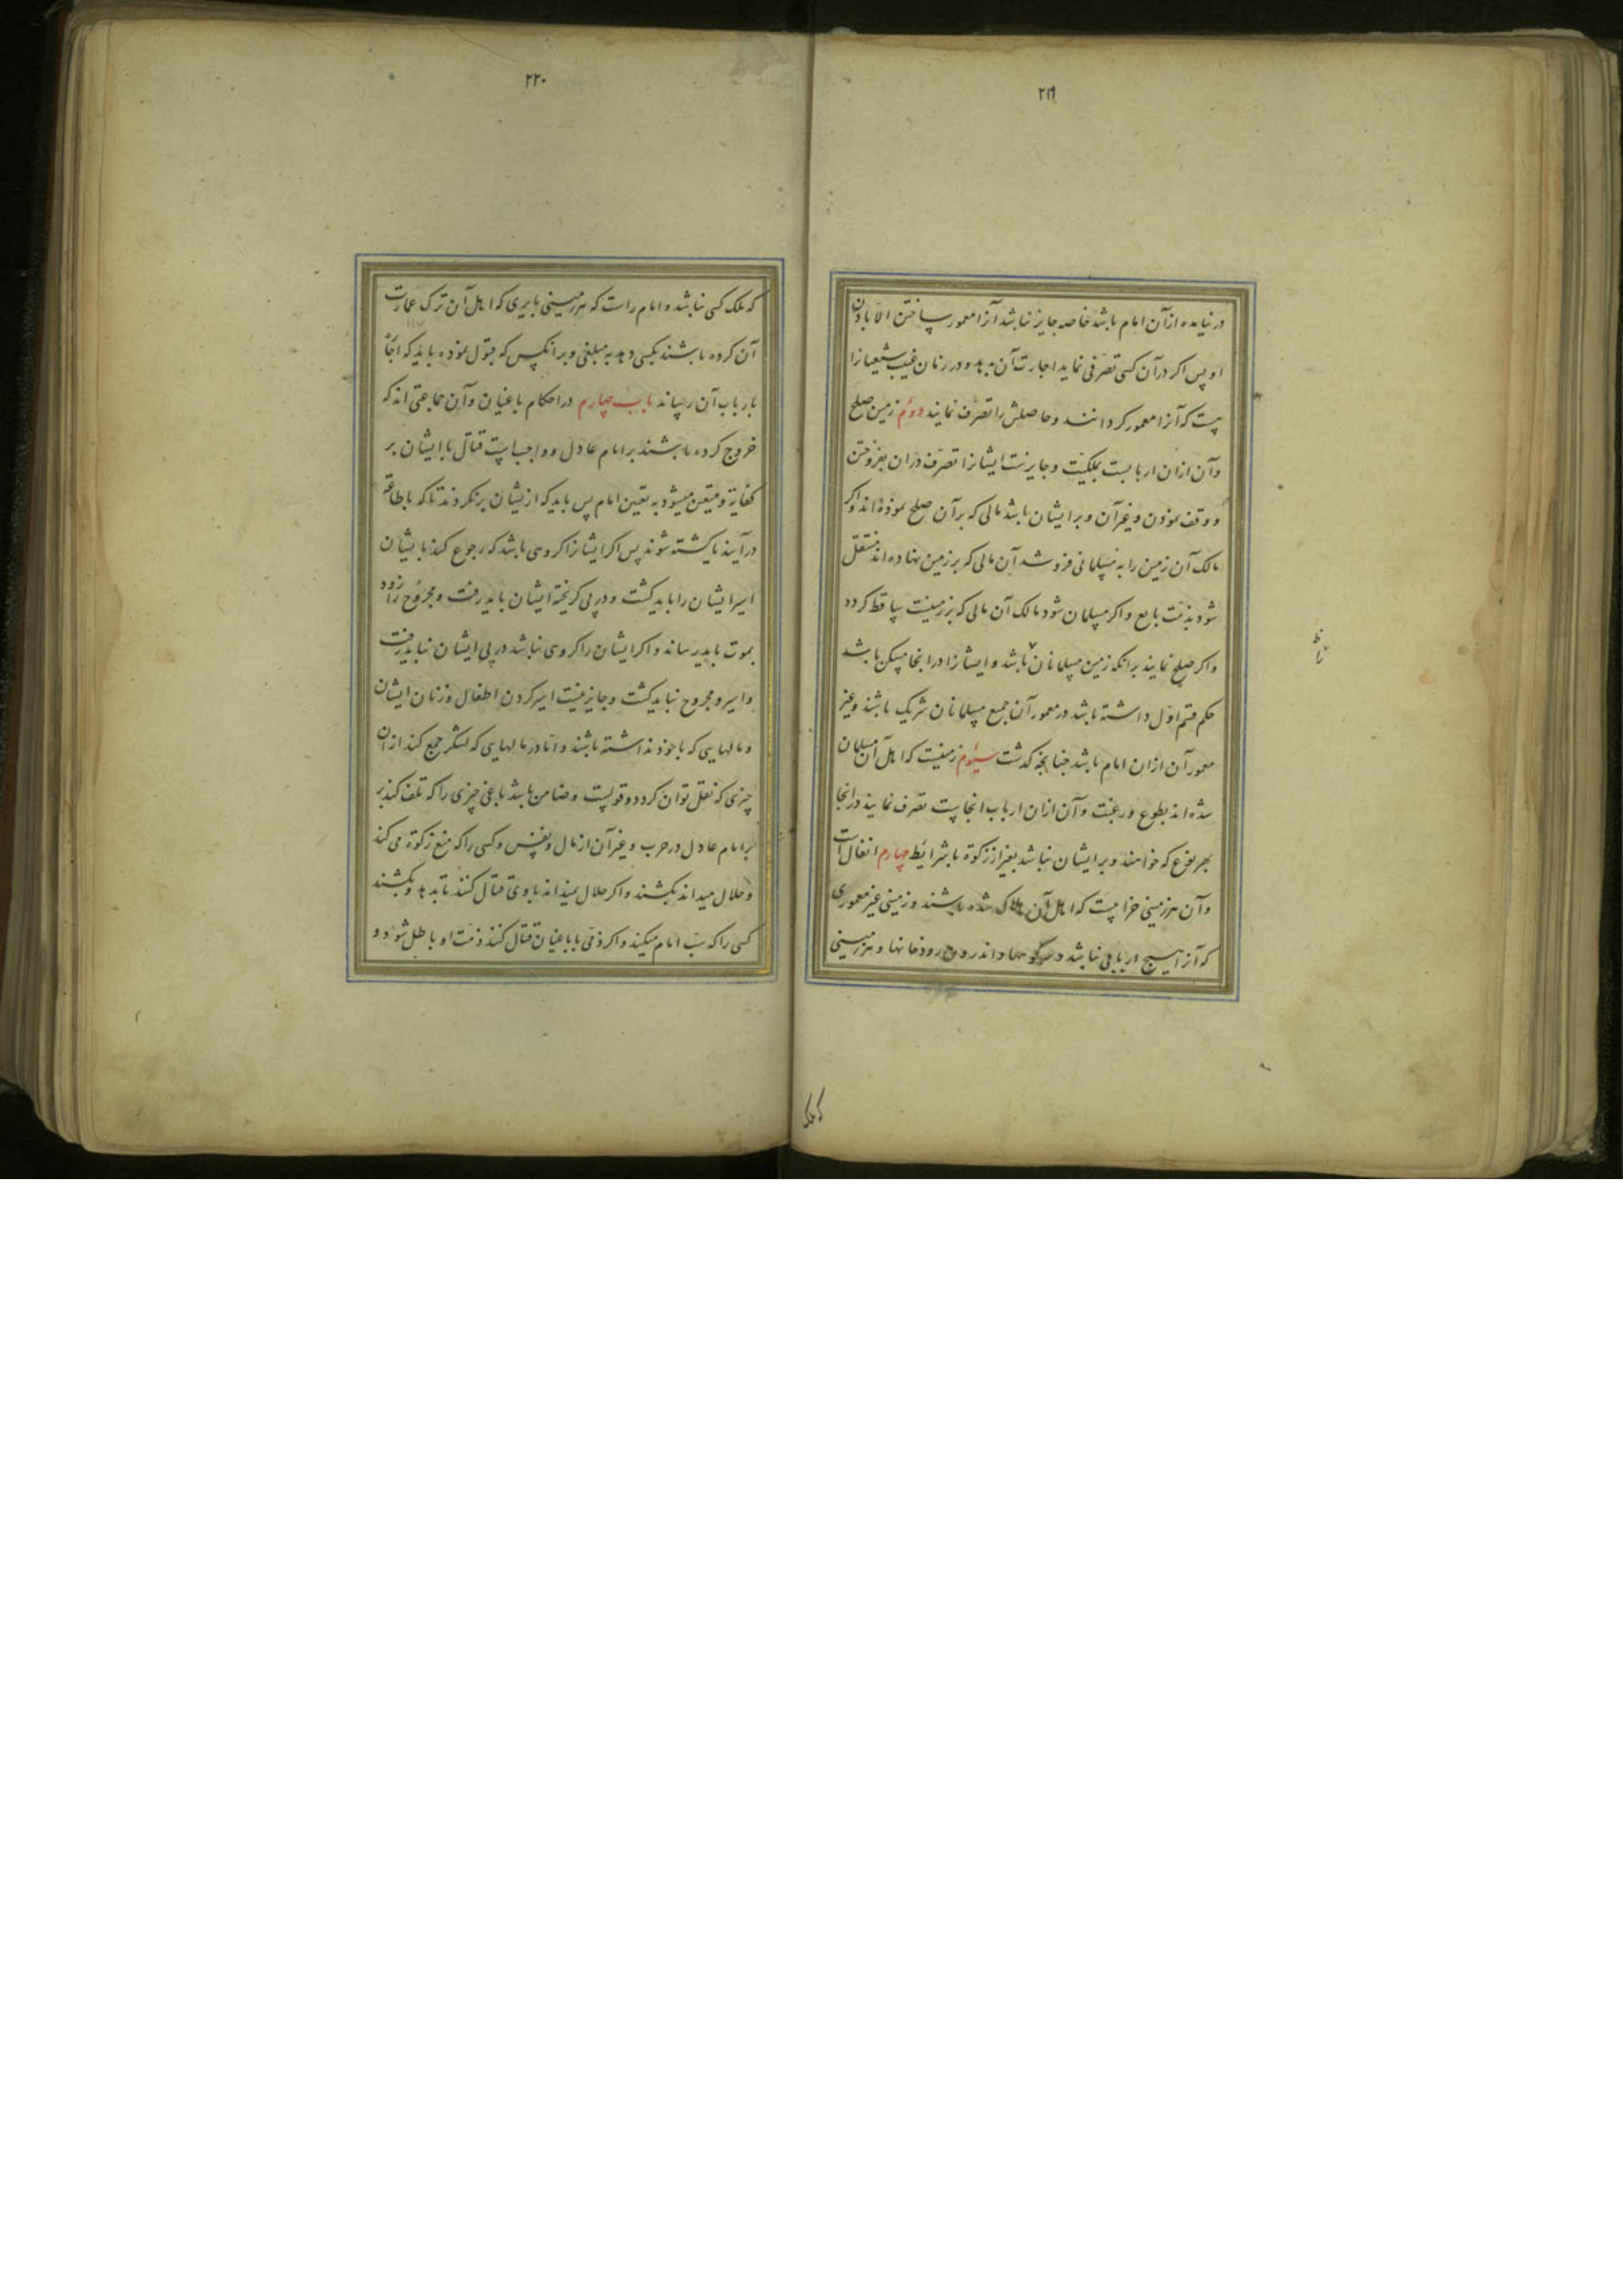 ۲۱۹
در نیامده ازآن امام باشد خاصه جایز نباشد آنرا معمور ساختن الا باذن
او پس اکر درآن کسی تصرفی نماید اجارت آن بدهد و در زمان غیبت شیعیانرا
چیست که آنرا معمور کردانند و حاصلش را تصرف نمایند دوم زمین صلح
وآن ازان اربابست بملکیت و جایزست ایشانرا تصرف دران بفروختن
و وقف نمودن و غیرآن و بر ایشان باشد مالی که برآن صلح نموده اند و اکر
مالک آن زمین را به مسلمانی فروشد آن مالی که بر زمین نهاده اند منتقل
شود بذمت بایع و اکر مسلمان شود مالک آن مالی که بر زمینست ساقط کردد
و اکر صلح نمایند برانکه زمین مسلمانان باشد و ایشانرا درانجا مسکن باشد
حکم قسم اول داشته باشد در معمور آن جمیع مسلمانان شریک باشند و غیر
معمور آن ازان امام باشد چنانچه کذشت سیوم زمینیست که اهل آن مسلمان
شده اند بطوع و رغبت و آن ازان ارباب انجاست تصرف نمایند درانجا
بهر نوع که خواهند و بر ایشان نباشد بغیر از زکوة با شرایط چهارم انفال است
وآن هر زمینی خرابست که اهل آن هلاک شده باشند و زمینی غیر معموری
که آنرا هیچ اربابی نباشد و کوهها و اندرون رودخانها و هر زمینی
زا
ظ
که ملک
۲۲۰
که ملک کسی نباشد و امام راست که هر زمینی بایری که اهل آن ترک عمارت
آن کرده باشند بکسی دهد به مبلغی و بر انکس که قبول نموده باید که اجاره
بارباب آن رساند باب چهارم در احکام باغیان وآن جماعتی اند که
خروج کرده باشند بر امام عادل و واجبست قتال با ایشان بر
کفایة و متعین میشود به تعین امام پس باید که ازیشان برنکردند تا که باطاعة
درآیند یا کشته شوند پس اکر ایشانرا کروهی باشد که رجوع کنند بایشان
اسیر ایشان را باید کشت و در پی کریخته ایشان باید رفت و مجروح را زود
بموت باید رساند و اکر ایشان را کروهی نباشد در پی ایشان نباید رفت
و اسیر و مجروح نباید کشت و جایز نیست اسیر کردن اطفال و زنان ایشان
و مالهایی که با خود نداشته باشند و اما در مالهایی که لشکر جمع کند ازان
چیزی که نقل توان کرد دو قولست و ضامن باشد باغی چیزی را که تلف کند بر
بر امام عادل در حرب و غیرآن از مال و نفس و کسی را که منع زکوة می کند
و حلال میداند بکشند و اکر حلال نمیداند با وی قتال کنند تا بدهد و بکشند
کسی را که سب امام میکند و اکر ذمی با باغیان قتال کنند ذمت او باطل شود و